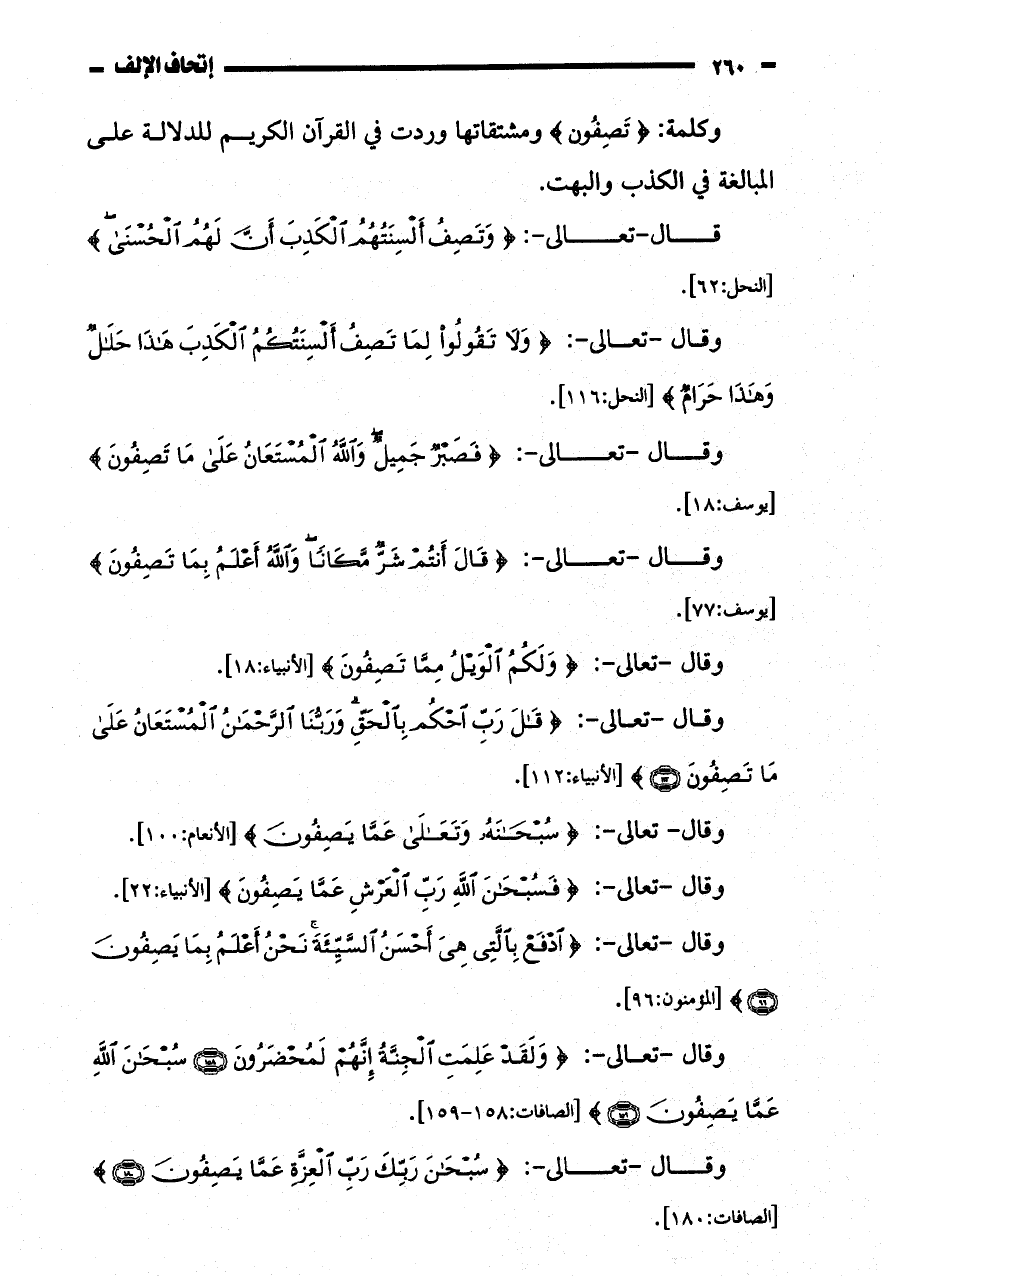 ٢٦٠ إتحاف الإلف
وكلمة: ﴿ تَصِفُون ﴾ ومشتقاتها وردت في القرآن الكريـم للدلالـة علـى
المبالغة في الكذب والبهت.
قـــال-تعــــالى-: ﴿ وَتَصِفُ أَلْسِنَتُهُمُ ٱلْكَذِبَ أَنَّ لَهُمُ ٱلْحُسْنَىٰ ۖ ﴾
[النحل:٦٢].
وقـال -تعـــالى-: ﴿ وَلَا تَقُولُوا۟ لِمَا تَصِفُ أَلْسِنَتُكُمُ ٱلْكَذِبَ هَـٰذَا حَلَـٰلٌ
وَهَـٰذَا حَرَامٌ ﴾ [النحل:١١٦].
وقــــال -تعــــــالى-: ﴿ فَصَبْرٌ جَمِيلٌ ۖ وَٱللَّهُ ٱلْمُسْتَعَانُ عَلَىٰ مَا تَصِفُونَ ﴾
[يوسف:١٨].
وقــــال -تعـــــالى-: ﴿ قَالَ أَنتُمْ شَرٌّ مَّكَانًا ۖ وَٱللَّهُ أَعْلَمُ بِمَا تَصِفُونَ ﴾
[يوسف:٧٧].
وقال -تعالى-: ﴿ وَلَكُمُ ٱلْوَيْلُ مِمَّا تَصِفُونَ ﴾ [الأنبياء:١٨].
وقـال -تعـالى-: ﴿ قَـٰلَ رَبِّ ٱحْكُم بِٱلْحَقِّ ۗ وَرَبُّنَا ٱلرَّحْمَـٰنُ ٱلْمُسْتَعَانُ عَلَىٰ
مَا تَصِفُونَ ١١٢ ﴾ [الأنبياء:١١٢].
وقال- تعالى-: ﴿ سُبْحَـٰنَهُۥ وَتَعَـٰلَىٰ عَمَّا يَصِفُونَ ﴾ [الأنعام:١٠٠].
وقال -تعالى-: ﴿ فَسُبْحَـٰنَ ٱللَّهِ رَبِّ ٱلْعَرْشِ عَمَّا يَصِفُونَ ﴾ [الأنبياء:٢٢].
وقال -تعالى-: ﴿ ٱدْفَعْ بِٱلَّتِى هِىَ أَحْسَنُ ٱلسَّيِّئَةَ ۚ نَحْنُ أَعْلَمُ بِمَا يَصِفُونَ
٩٦ ﴾ [المؤمنون:٩٦].
وقال -تعـالى-: ﴿ وَلَقَدْ عَلِمَتِ ٱلْجِنَّةُ إِنَّهُمْ لَمُحْضَرُونَ ١٥٨ سُبْحَـٰنَ ٱللَّهِ
عَمَّا يَصِفُونَ ١٥٩ ﴾ [الصافات:١٥٨-١٥٩].
وقــــال -تعـــــالى-: ﴿ سُبْحَـٰنَ رَبِّكَ رَبِّ ٱلْعِزَّةِ عَمَّا يَصِفُونَ ١٨٠ ﴾
[الصافات:١٨٠].